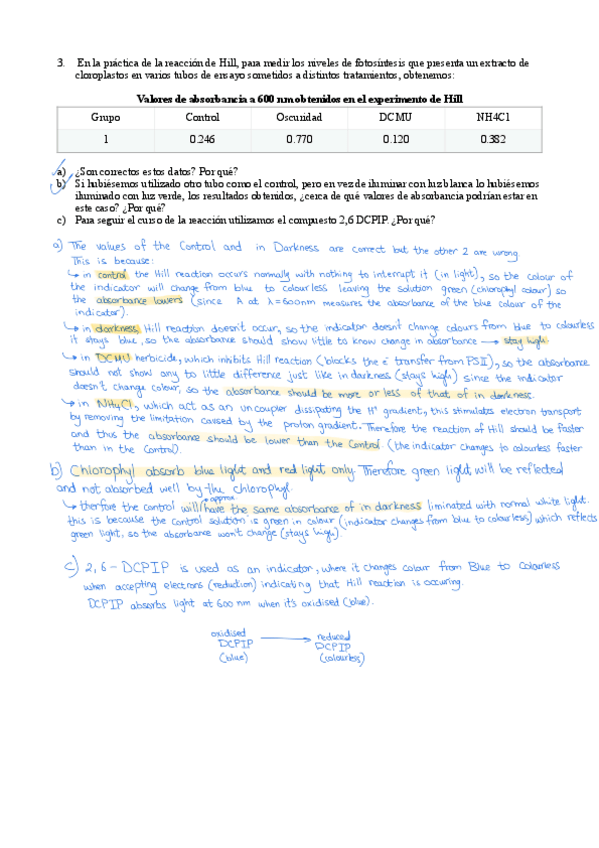 3. En la práctica de la reacción de Hill, para medir los niveles de fotosíntesis que presenta un extracto de
cloroplastos en varios tubos de ensayo sometidos a distintos tratamientos, obtenemos:
Valores de absorbancia a 600 nm obtenidos en el experimento de Hill
Grupo Control Oscuridad DCMU NH4Cl
1 0.246 0.770 0.120 0.382
a) ¿Son correctos estos datos? Por qué?
b) Si hubiésemos utilizado otro tubo como el control, pero en vez de iluminar con luz blanca lo hubiésemos
iluminado con luz verde, los resultados obtenidos, ¿cerca de qué valores de absorbancia podrían estar en
este caso? ¿Por qué?
c) Para seguir el curso de la reacción utilizamos el compuesto 2,6 DCPIP. ¿Por qué?
a) The values of the Control and in Darkness are correct but the other 2 are wrong.
This is because:
↳ in control the Hill reaction occurs normally with nothing to interrupt it (in light), so the colour of
the indicator will change from blue to colourless leaving the solution green (chlorophyl colour) so
the absorbance lowers (since A at λ=600nm measures the absorbance of the blue colour of the
indicator).
↳ in darkness Hill reaction doesn't occur, so the indicator doesn't change colours from blue to colourless
it stays blue, so the absorbance should show little to know change in absorbance → stay high.
↳ in DCMU herbicide, which inhibits Hill reaction (blocks the e⁻ transfer from PSII), so the absorbance
should not show any to little difference just like in darkness (stays high) since the indicator
doesn't change colour, so the absorbance should be more or less of that of in darkness.
↳ in NH4Cl, which act as an uncoupler dissipating the H⁺ gradient, this stimulates electron transport
by removing the limitation caused by the proton gradient. Therefore the reaction of Hill should be faster
and thus the absorbance should be lower than the Control. (the indicator changes to colourless faster
than in the Control).
b) Chlorophyl absorb blue light and red light only Therefore green light will be reflected
and not absorbed well by the chlorophyl.
↳ therfore the control will have the same absorbance of in darkness liminated with normal white light.
this is because the control solution is green in colour (indicator changes from blue to colourless) which reflects
green light, so the absorbance won't change (stays high).
c) 2,6 - DCPIP is used as an indicator, where it changes colour from Blue to Colourless
when accepting electrons (reduction) indicating that Hill reaction is occuring.
DCPIP absorbs light at 600 nm when it's oxidised (blue).
oxidised → reduced
DCPIP DCPIP
(blue) (colourless)